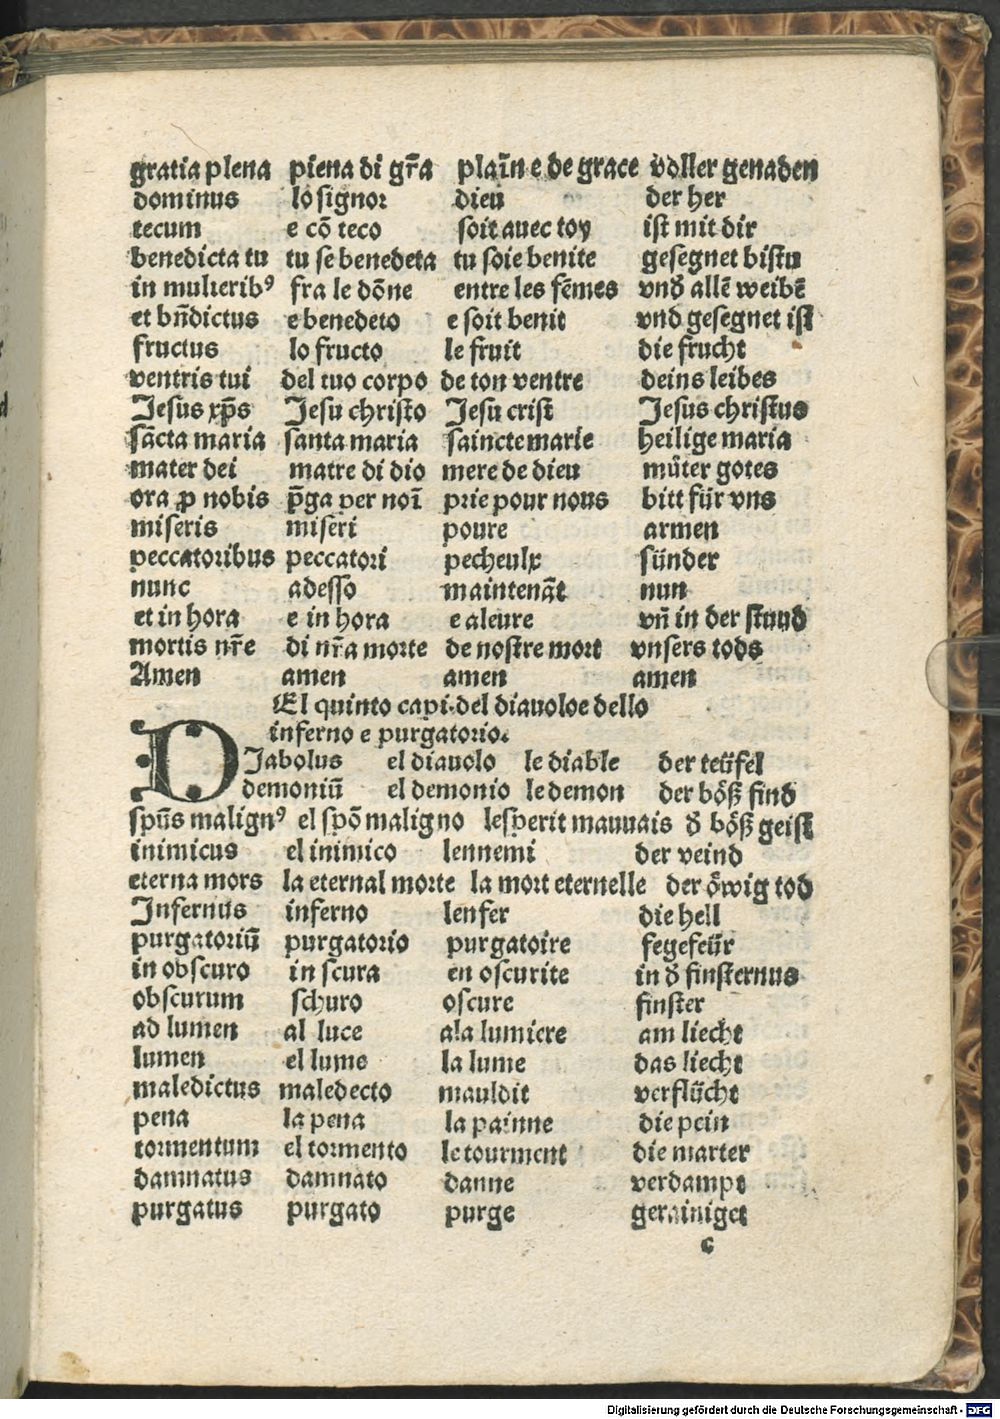 gratia plena piena di gr̄a plaīn e de grace voller genaden
dominus lo signor dieu der her
tecum e cō teco soit auec toy ist mit dir
benedicta tu tu se benedeta tu soie benite gesegnet bistu
in mulieribꝰ fra le dōne entre les fēmes vnd̓ allē weibē
et bn̄dictus e benedeto e soit benit vnd gesegnet ist
fructus lo fructo le fruit die frucht
ventris tui del tuo corpo de ton ventre deins leibes
Jesus xp̄s Jesu christo Jesu crist Jesus christus
sācta maria santa maria saincte marie heilige maria
mater dei matre di dio mere de dieu mūter gotes
ora ꝓ nobis p̄ga per noī prie pour nous bitt für vns
miseris miseri poure armen
peccatoribus peccatori pecheulx sünder
nunc adesso maintenāt nun
et in hora e in hora e aleure vn̄ in der stund
mortis nr̄e di nr̄a morte de nostre mort vnsers tods
Amen amen amen amen
El quinto capi. del diauoloe dello
inferno e purgatorio.
DJabolus el diauolo le diable der teüfel
demoniū el demonio le demon der böß find
spūs malignꝰ el spō maligno lesperit mauuais d̓ böß geist
inimicus el inimico lennemi der veind
eterna mors la eternal morte la mort eternelle der öwig tod
Infernus inferno lenfer die hell
purgatoriū purgatorio purgatoire fegefeür
in obscuro in scura en oscurite in d̓ finsternus
obscurum schuro oscure finster
ad lumen al luce ala lumiere am liecht
lumen el lume la lume das liecht
maledictus maledecto mauldit verflücht
pena la pena la painne die pein
tormentum el tormento le tourment die marter
damnatus damnato danne verdampt
purgatus purgato purge gerainiget
c
Digitalisierung gefördert durch die Deutsche Forschungsgemeinschaft - DFG